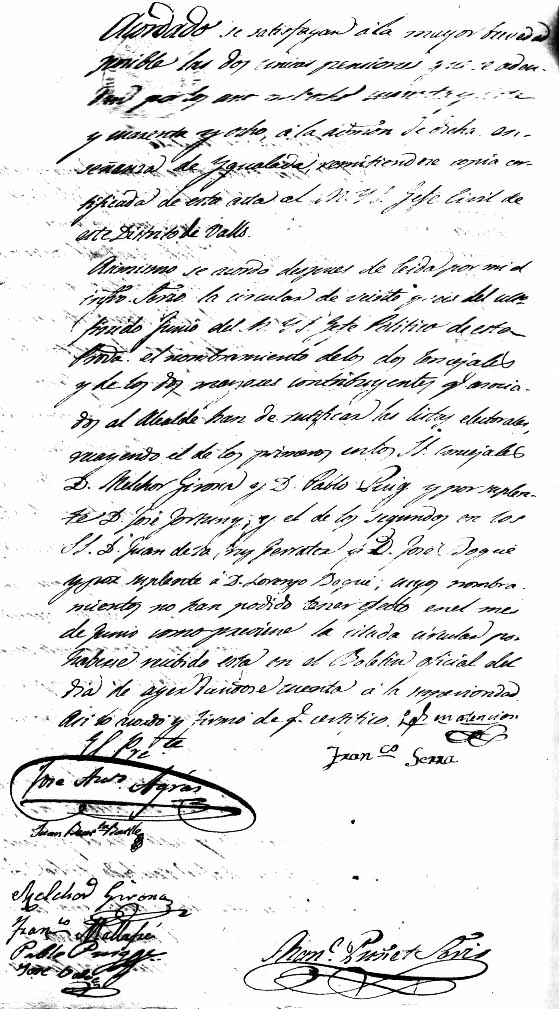 Acordado se satisfagan á la mayor brevedad
posible las dos únicas pensiones q.e se adeu-
dan por los años ocho cuarenta y siete
y cuarenta y ocho, á la de dicha en-
señanza de Ygualada, remitiendose copia cer-
tificada de esta acta al M. Y. S. Jefe Civil de
este Distrito de Valls.
Asimismo se acordo despues de leida por mi el
infro. Srio. la circular de veinte y seis del ul-
timo Junio del M. Y. S. Jefe Politico de esta
Prov.a el nombramiento de los dos Concejales
y de los dos mayores contribuyentes q.e asocia-
dos al Alcalde han de rectificar las listas electorales,
recayendo el de los primeros en los SS. Concejales
D. Melchor Girona y D. Pablo Puig y por suplen-
te D. José Fortuny; y el de los segundos en los
SS. D. Juan de la Ferrater y D. José Bogué
y por suplente á D. Lorenzo Bogué; cuyos nombra-
mientos no han podido tener efecto en el mes
de Junio como previene la citada circular por
haberse recibido esta en el Boletin oficial del
dia de ayer dandose cuenta á la superioridad
Asi lo acordó y firmó de q.e certifico. en atencion
El Pre.te
Fran.co Serra
José Ant.o Agrás
Juan
Melchor Girona
Fran.co
Pablo Puig
José
Srio